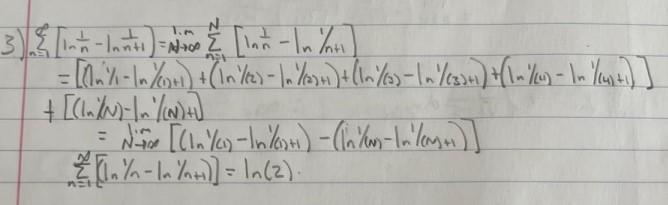 3) ∑_{n=1}^{∞} [ln 1/n - ln 1/n+1] = lim_{N→∞} ∑_{n=1}^{N} [ln 1/n - ln 1/n+1]
= [(ln 1/1 - ln 1/(1)+1) + (ln 1/(2) - ln 1/(2)+1) + (ln 1/(3) - ln 1/(3)+1) + (ln 1/(4) - ln 1/(4)+1)]
+ [(ln 1/N) - ln 1/(N)+1]
= lim_{N→∞} [(ln 1/(1) - ln 1/(1)+1) - (ln 1/(N) - ln 1/(N)+1)]
∑_{n=1}^{N} [ln 1/n - ln 1/n+1)] = ln(2).